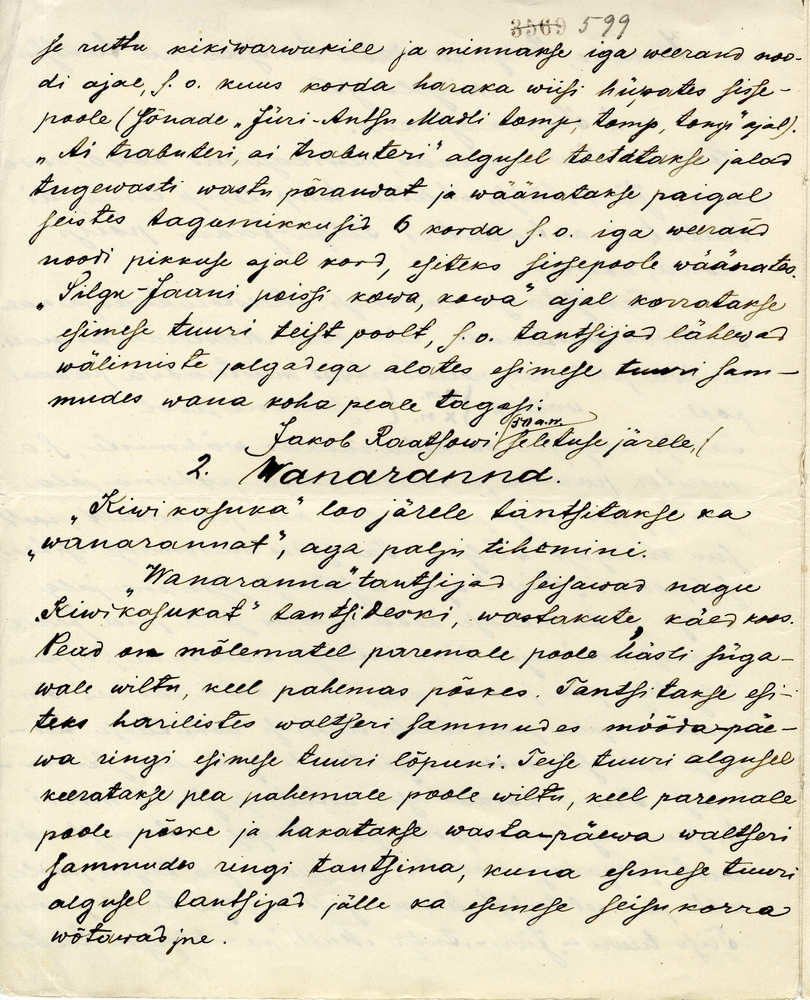 3569 599
se ruttu kikiwarwukile ja minnakse iga weerand noo-
di ajal, s. o. kuus korda haraka wiisi hüpates sisse-
poole (sõnade „Jüri-Antsu Madli tomp, tomp, tomp" ajal).
„Ai trabuteri, ai trabuteri" algusel toetatakse jalad
tugewasti wastu põrandat ja wäänatakse paigal
seistes tagumikkusid 6 korda s. o. iga weerand
noodi pikkuse ajal kord, esiteks sissepoole wäänates.
„Silgu-Jaani poissi kowa, kowa" ajal korratakse
esimese tuuri teist poolt, s. o. tantsijad lähewad
wälimiste jalgadega alates esimese tuuri sam-
mudes wana koha peale tagasi.
Jakob Raatsowi seletuse järele,
2. Wanaranna.
„Kiwikasuka" loo järele tantsitakse ka
„wanarannat", aga palju tihemini.
„Wanaranna" tantsijad seisawad nagu
„Kiwikasukat" tantsideski, wastakute, käed koos.
Pead on mõlematel paremale poole hästi süga-
wale wiltu, keel pahemas põskes. Tantsitakse esi-
teks harilistes waltseri sammudes mööda-päe-
wa ringi esimese tuuri lõpuni. Teise tuuri algusel
keeratakse pea pahemale poole wiltu, keel paremale
poole põske ja hakatakse wasta-päewa waltseri
sammudes ringi tantsima, kuna esimese tuuri
algusel tantsijad jälle ka esimese seisukorra
wõtawad jne.